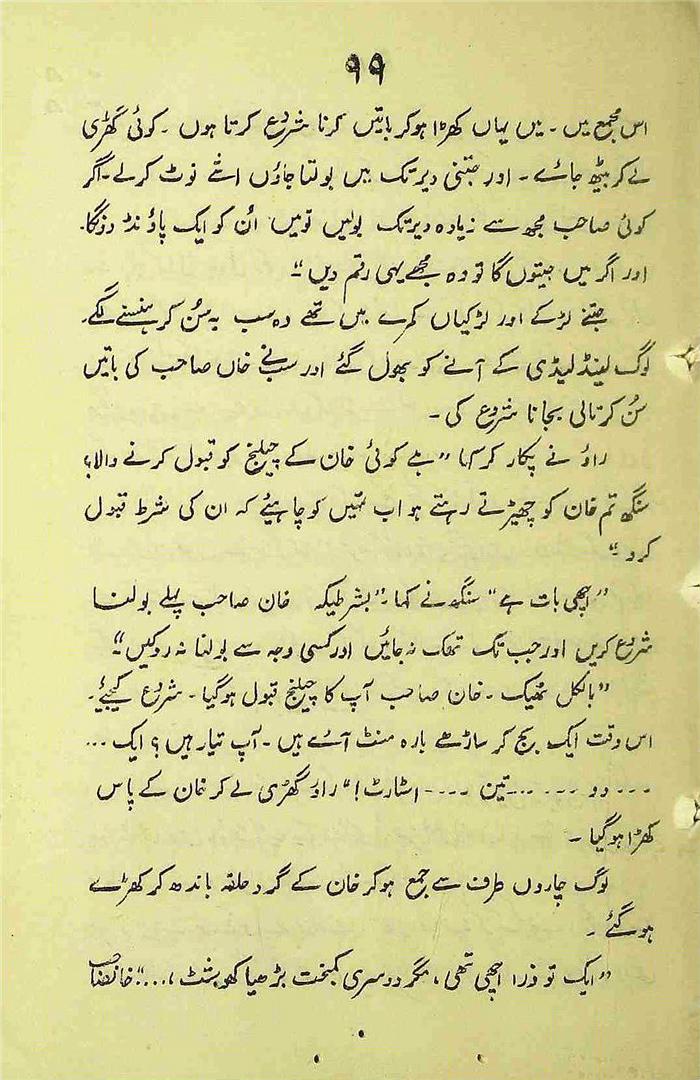 ۹۹
اس مجمع میں ۔ میں یہاں کھڑا ہوکر باتیں کرنا شروع کرتا ہوں ۔ کوئی گھڑی
لے کر بیٹھ جائے ۔ اور جتنی دیر تک میں بولتا جاؤں اسے نوٹ کرلے ۔ اگر
کوئی صاحب مجھ سے زیادہ دیر تک بولیں تو میں اُن کو ایک پاؤنڈ دونگا۔
اور اگر میں جیتوں گا تو وہ مجھے یہی رقم دیں“
جتنے لڑکے اور لڑکیاں کمرے میں تھے وہ سب یہ سُن کر ہنسنے لگے۔
لوگ لینڈ لیڈی کے آنے کو بھول گئے اور سب نے خاں صاحب کی باتیں
سُن کر تالی بجانا شروع کی ۔
راؤ نے پکار کر کہا ”ہے کوئی خان کے چیلنج کو قبول کرنے والا؟
سنگھ تم خان کو چھیڑتے رہتے ہو اب تمہیں کو چاہیئے کہ ان کی شرط قبول
کرو“
”اچھی بات ہے“ سنگھ نے کہا ۔ ”بشرطیکہ خان صاحب پہلے بولنا
شروع کریں اور جب تک تھک نہ جائیں اور کسی وجہ سے بولنا نہ روکیں“
”بالکل ٹھیک ۔ خان صاحب آپ کا چیلنج قبول ہوگیا ۔ شروع کیجئے۔
اس وقت ایک بج کر ساڑھے بارہ منٹ آئے ہیں ۔ آپ تیار ہیں ؟ ایک ...
... دو ...... تین .... اسٹارٹ !“ راؤ گھڑی لے کر خان کے پاس
کھڑا ہو گیا ۔
لوگ چاروں طرف سے جمع ہو کر خان کے گرد حلقہ باندھ کر کھڑے
ہو گئے ۔
”ایک تو ذرا اچھی تھی ، مگر دوسری کمبخت بڑھیا کھوسٹ ، ...“ خانصاحب